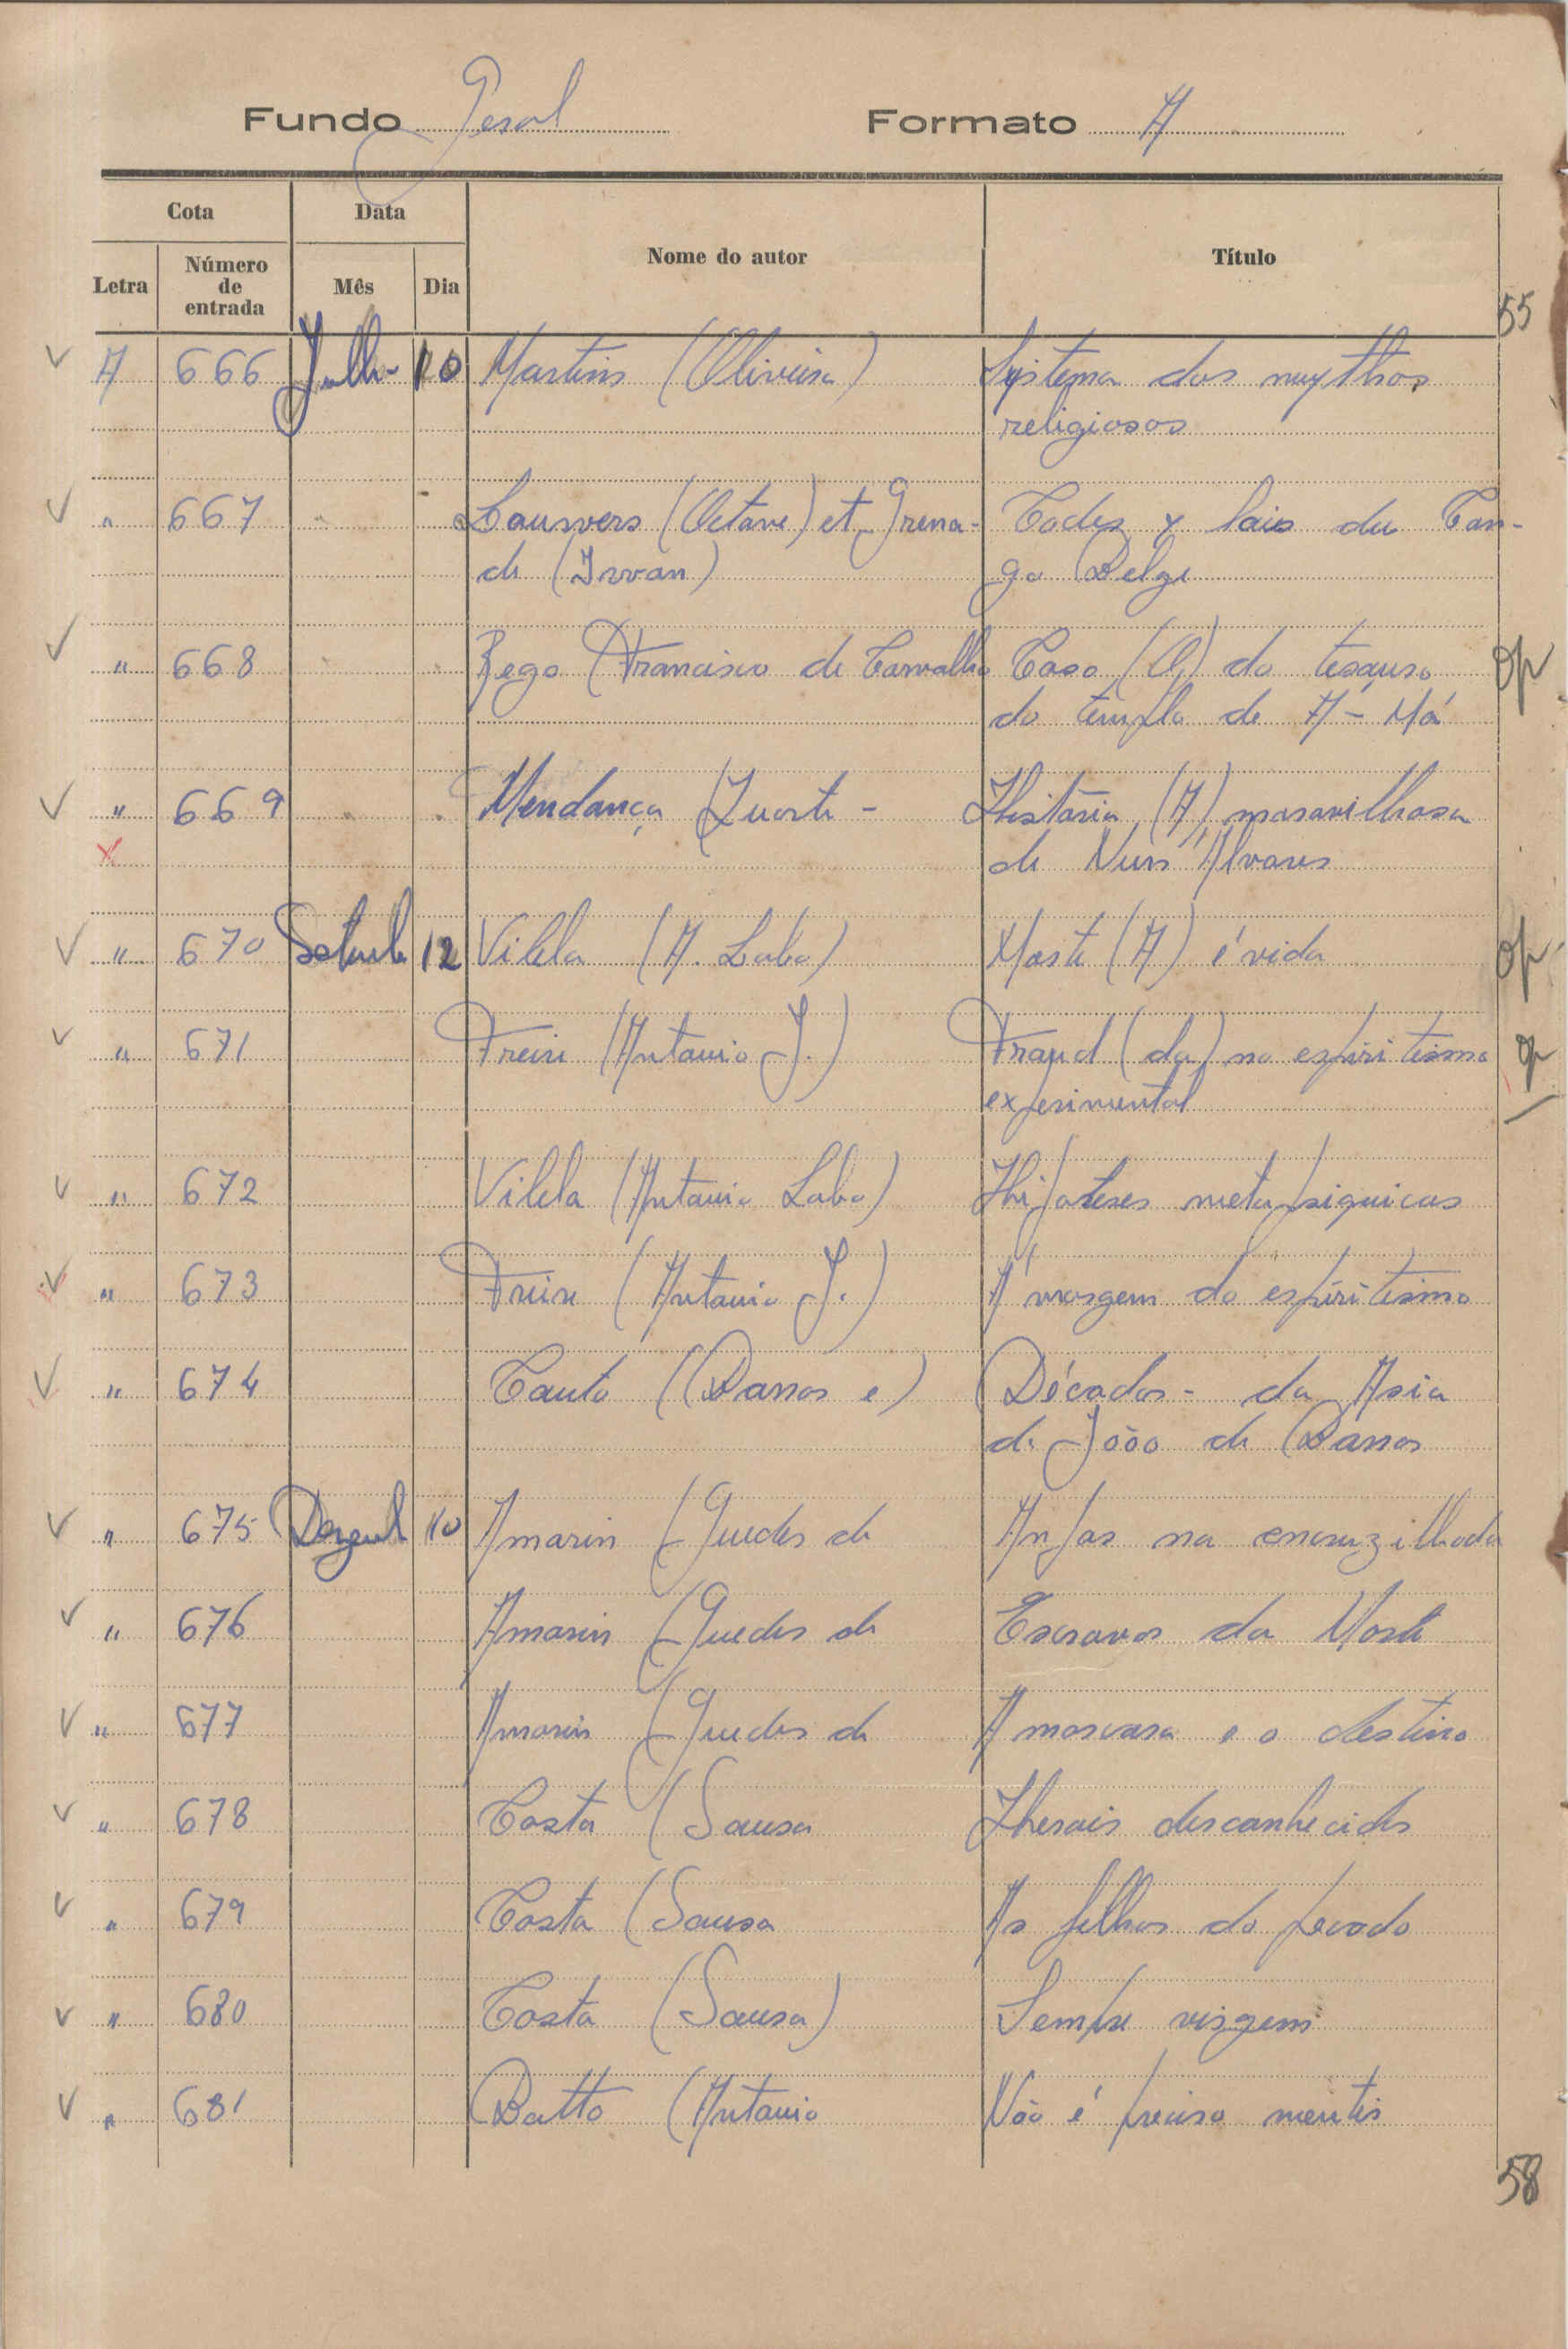 Fundo Geral Formato A
Cota Data Nome do autor Título
Letra Número de entrada Mês Dia
55
A 666 Julho 10 Martins (Oliveira) Systema dos mythos
religiosos
" 667 " " Louwers (Octave) et Grena- Codes & lois du Con-
de (Ivvan) go Belge
" 668 " " Rego (Francisco de Carvalho Caso (O) do tesouro op
do templo de A-Má
" 669 " " Mendança (Duarte - História (A) maravilhosa
X de Nun'Alvares
" 670 Setemb 12 Vilela (A. Lobo) Morte (A) é vida op
" 671 Freire (Antonio J.) Fraud (da) no espiritismo op
experimental
" 672 Vilela (Antonio Lobo) Hipoteses metapsiquicas
" 673 Freire (Antonio J.) Á margem do espiritismo
" 674 Couto (Barros e) Décadas - da Asia
de João de Barros
" 675 Dezemb 10 Amorin (Guedes de Anjos na encruzilhada
" 676 Amorin (Guedes de Escravos da Morte
" 677 Amorin (Guedes de A mascara e o destino
" 678 Costa (Sousa Herois desconhecidos
" 679 Costa (Sousa Os filhos do pecado
" 680 Costa (Sousa) Sempre virgem
" 681 Botto (Antonio Não é preciso mentir
58